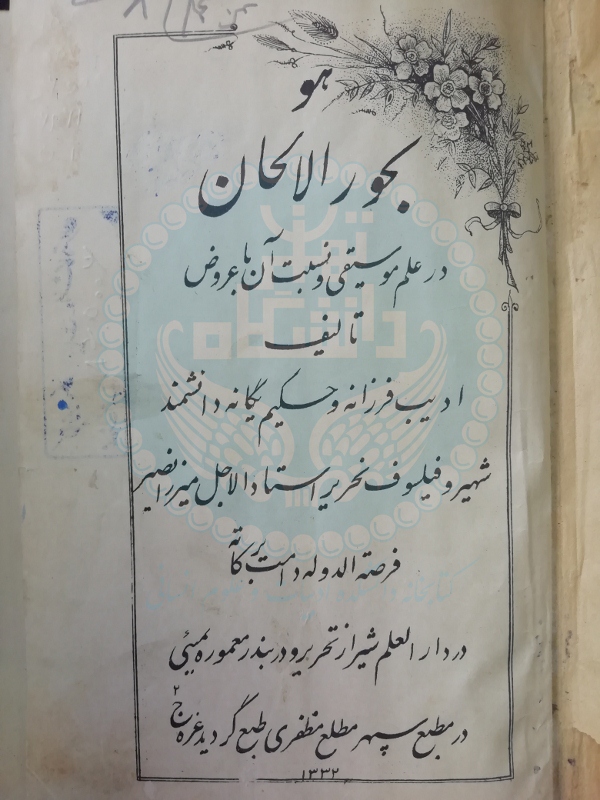 هو
بحور الالحان
در علم موسیقی و نسبت آن با عروض
تالیف
ادیب فرزانه و حکیم یگانه دانشمند
شهیر و فیلسوف نحریر استاد الاجل میرزا نصیر
فرصة الدوله دامت برکاته
در دار العلم شیراز تحریر و در بندر معموره بمبئی
در مطبع سپهر مطلع مظفری طبع گردید غره ج ۲
۱۳۳۲